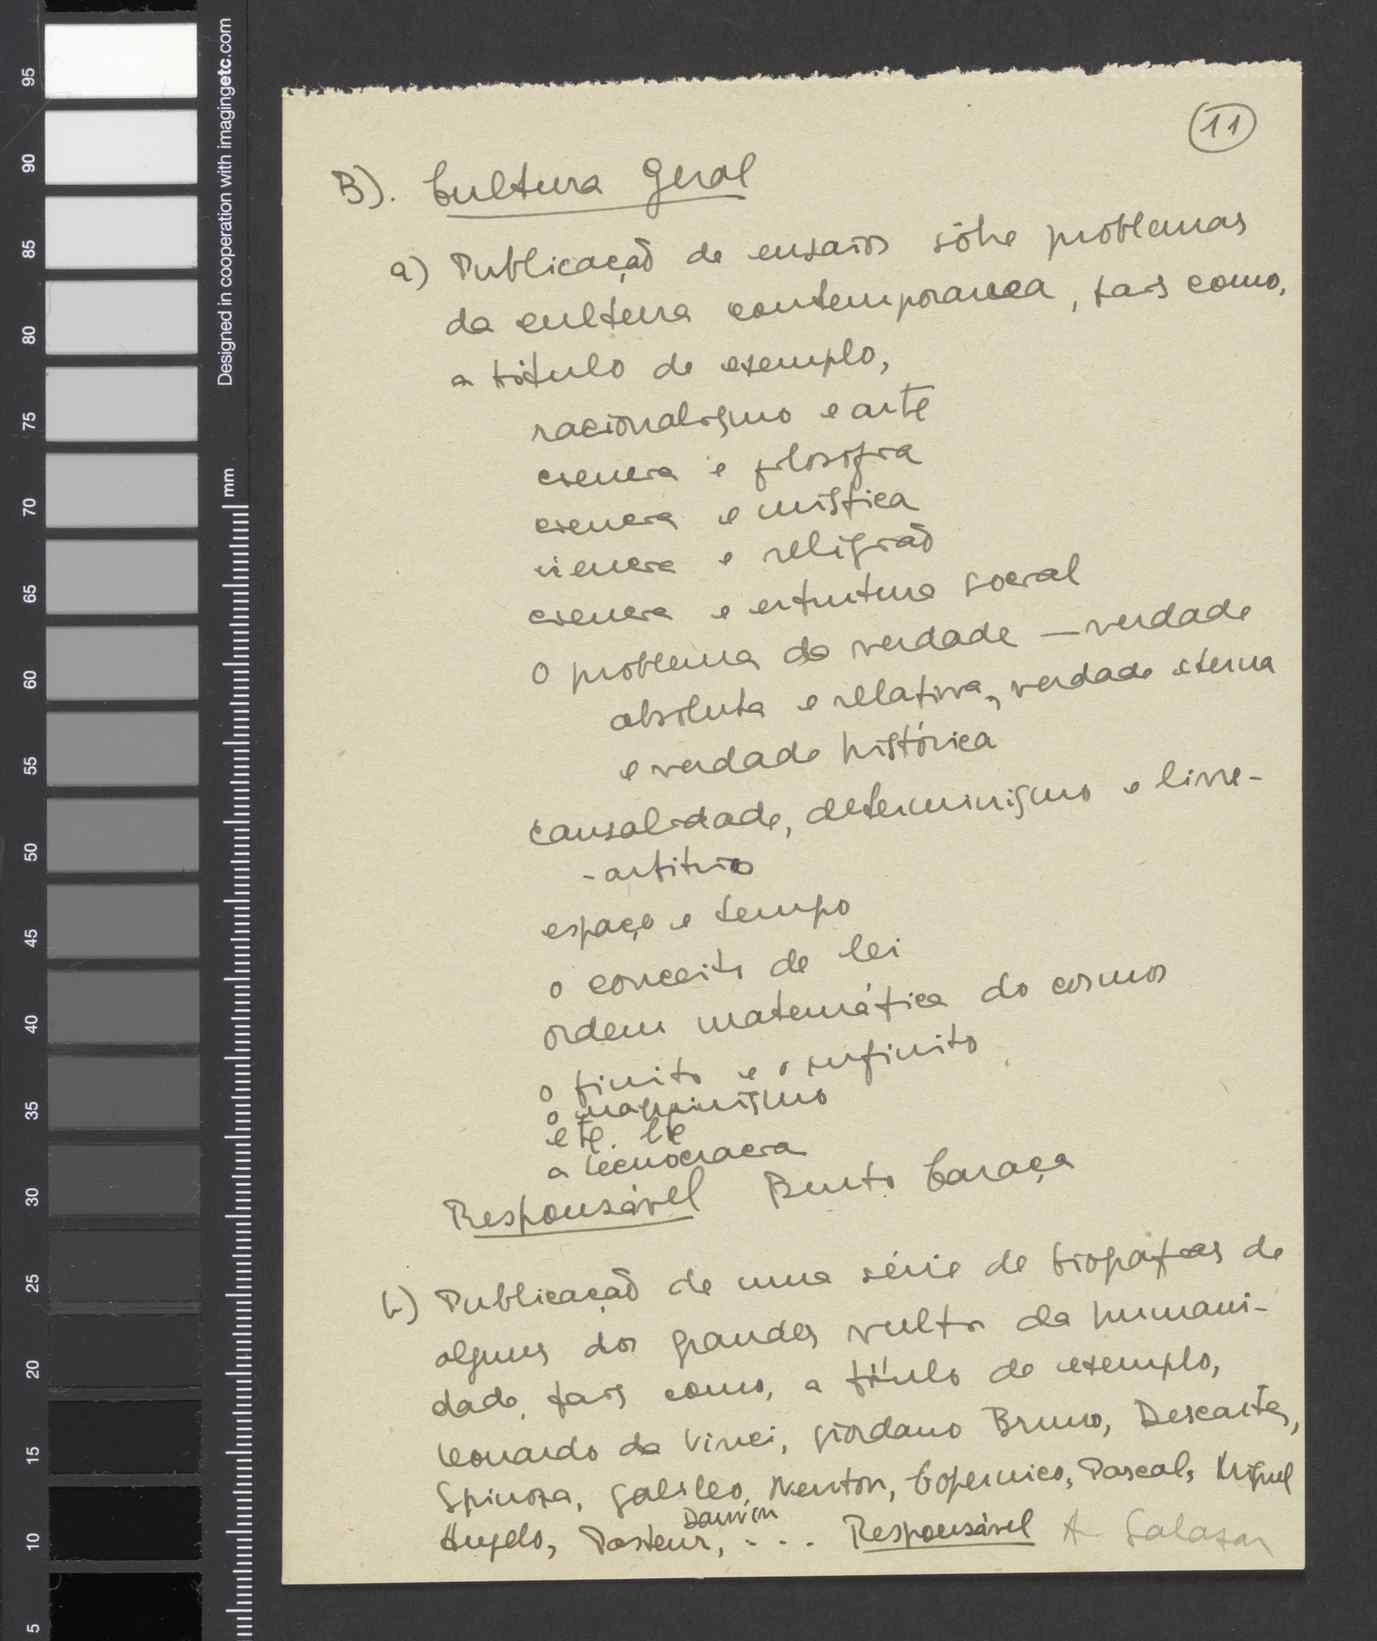 11
B). Cultura Geral
a) Publicação de ensaios sôbre problemas
da cultura contemporanea, tais como,
a titulo de exemplo,
racionalismo e arte
ciencia e filosofia
ciencia e mistica
ciencia e religião
ciencia e estrutura social
O problema da verdade — verdade
absoluta e relativa, verdade eterna
e verdade histórica
causalidade, determinismo e livre-
-arbitrio
espaço e tempo
o conceito de lei
ordem matemática do cosmos
o finito e o infinito
o maquinismo
etc. etc
a tecnocracia
Responsável Bento Caraça
b) Publicação de uma série de biografias de
alguns dos grandes vultos da humani-
dade, tais como, a título de exemplo,
Leonardo da Vinci, Giordano Bruno, Descartes,
Spinoza, Galileo, Newton, Copernico, Pascal, Miguel
Angelo, Pasteur, Darwin ... Responsável A Salazar
Designed in cooperation with imagingetc.com
mm
95
90
85
80
75
70
65
60
55
50
45
40
35
30
25
20
15
10
5